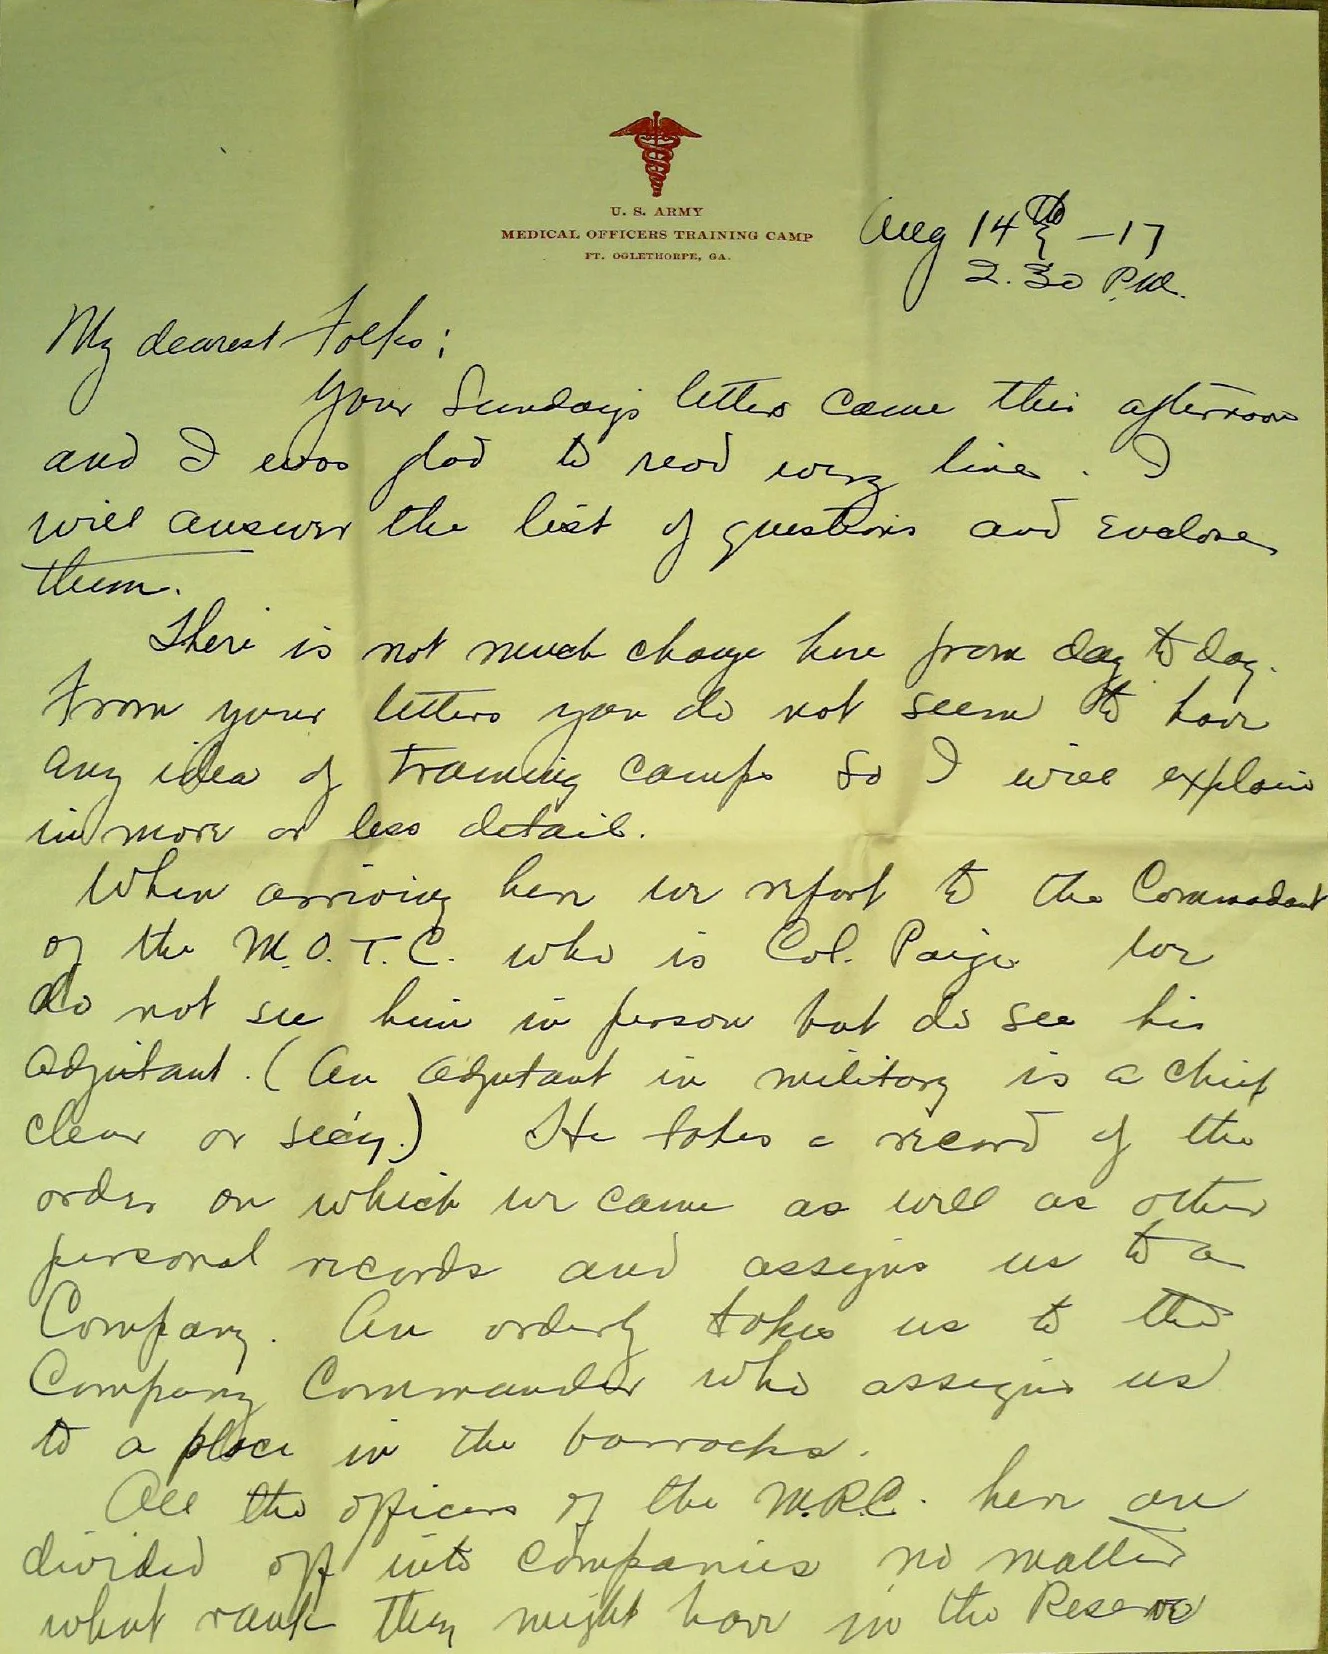 U. S. ARMY
MEDICAL OFFICERS TRAINING CAMP
FT. OGLETHORPE, GA.
Aug 14th -17
2.30 P.M.
My dearest Folks;
Your Sunday's letters came this afternoon
and I was glad to read every line. I
will answer the list of questions and enclose
them.
There is not much change here from day to day.
From your letters you do not seem to have
any idea of training camps so I will explain
in more or less detail.
When arriving here we report to the Commadant
of the M.O.T.C. who is Col. Paige we
do not see him in person but do see his
adjutant. (An adjutant in military is a chief
or sec'y.) He takes a record of the
order on which we came as well as other
personal records and assigns us to a
Company. An orderly takes us to the
Company Commander who assigns us
to a place in the barracks.
All the officers of the M.R.C. here are
divided off into companies no matter
what rank they might have in the Reserve